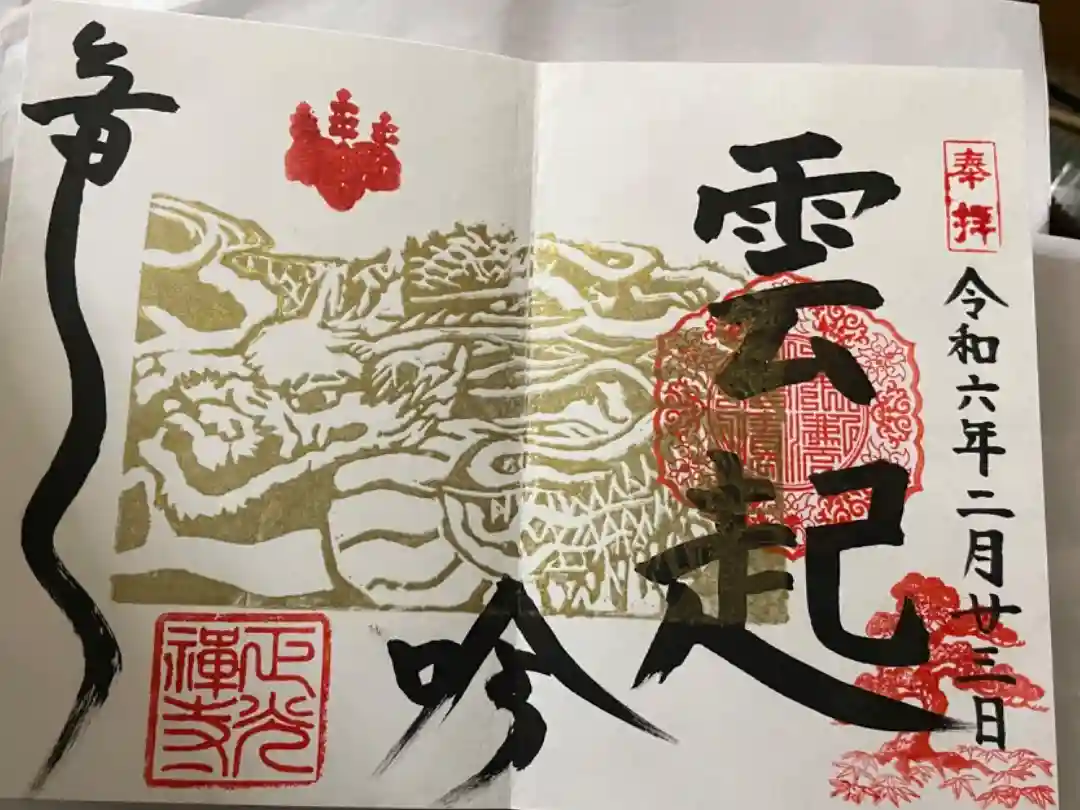 奉拝
令和六年二月廿三日
雲起
竜吟
正光
禪寺